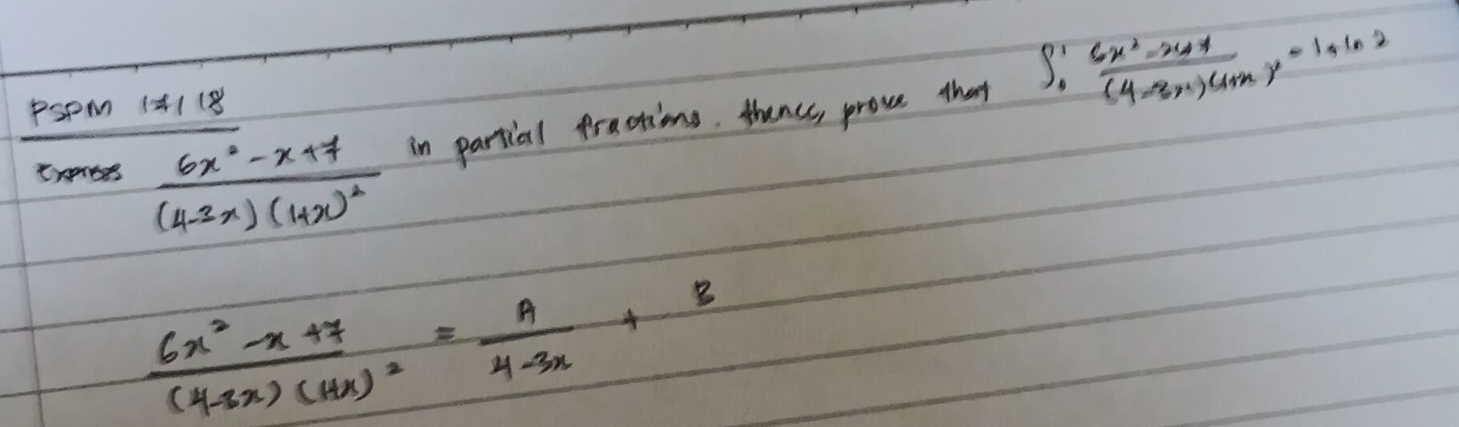 PSPM 17/18
Express 6x² - x + 7 / (4-3x)(1+x)² in partial fractions. thence, prove that ∫₀¹ 6x² - x + 7 / (4-3x)(1+x)² = 1 + ln 2
6x² - x + 7 / (4-3x)(1+x)² = A / 4-3x + B